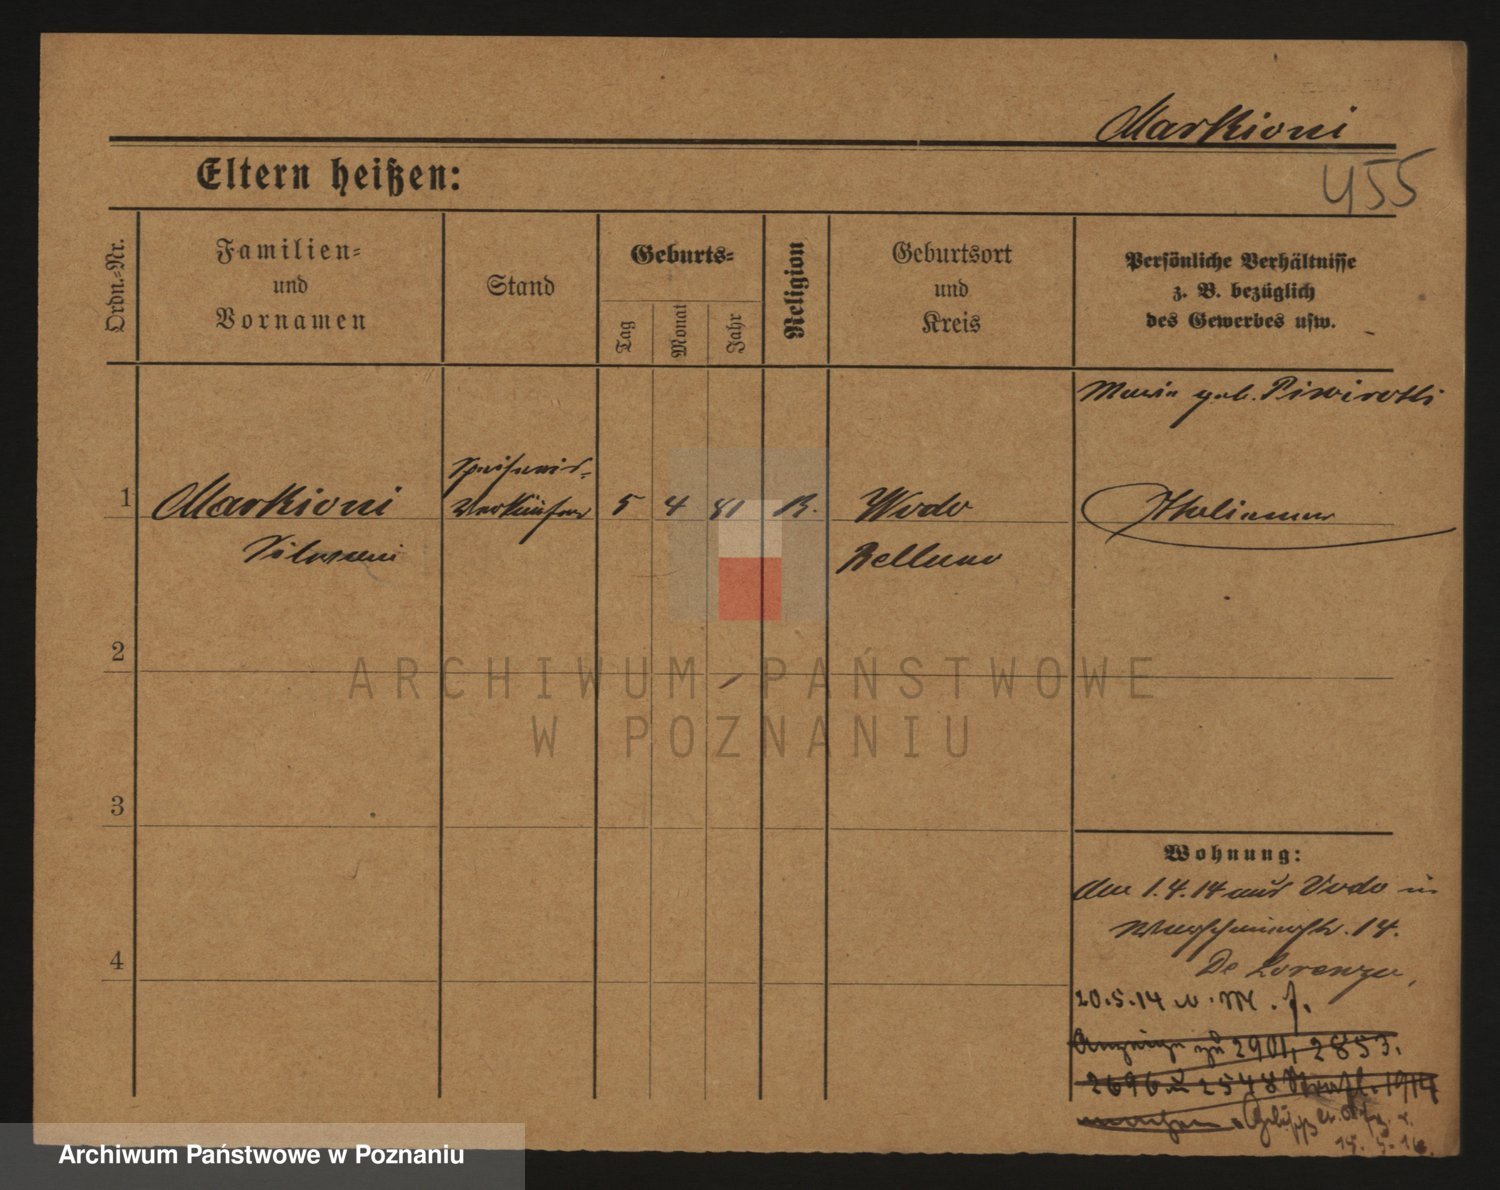 Markioni
455
Eltern heißen:
Ordn.-Nr.
Familien-
und
Vornamen
Stand
Geburts-
Tag
Monat
Jahr
Religion
Geburtsort
und
Kreis
Persönliche Verhältnisse
z. B. bezüglich
des Gewerbes usw.
Maria geb.
1
Markioni
Speiseeis-
Verkäufer
5 4 81 R.
Wodo
Belluno
Italiener
2
3
4
Wohnung:
den 1.4.14 aus Vodo in
14.
De Lorenzo,
20.5.14 v. M. f.
Anzeige zu 2901, 2853.
2696 u 2548 1914
ARCHIWUM PAŃSTWOWE
W POZNANIU
Archiwum Państwowe w Poznaniu